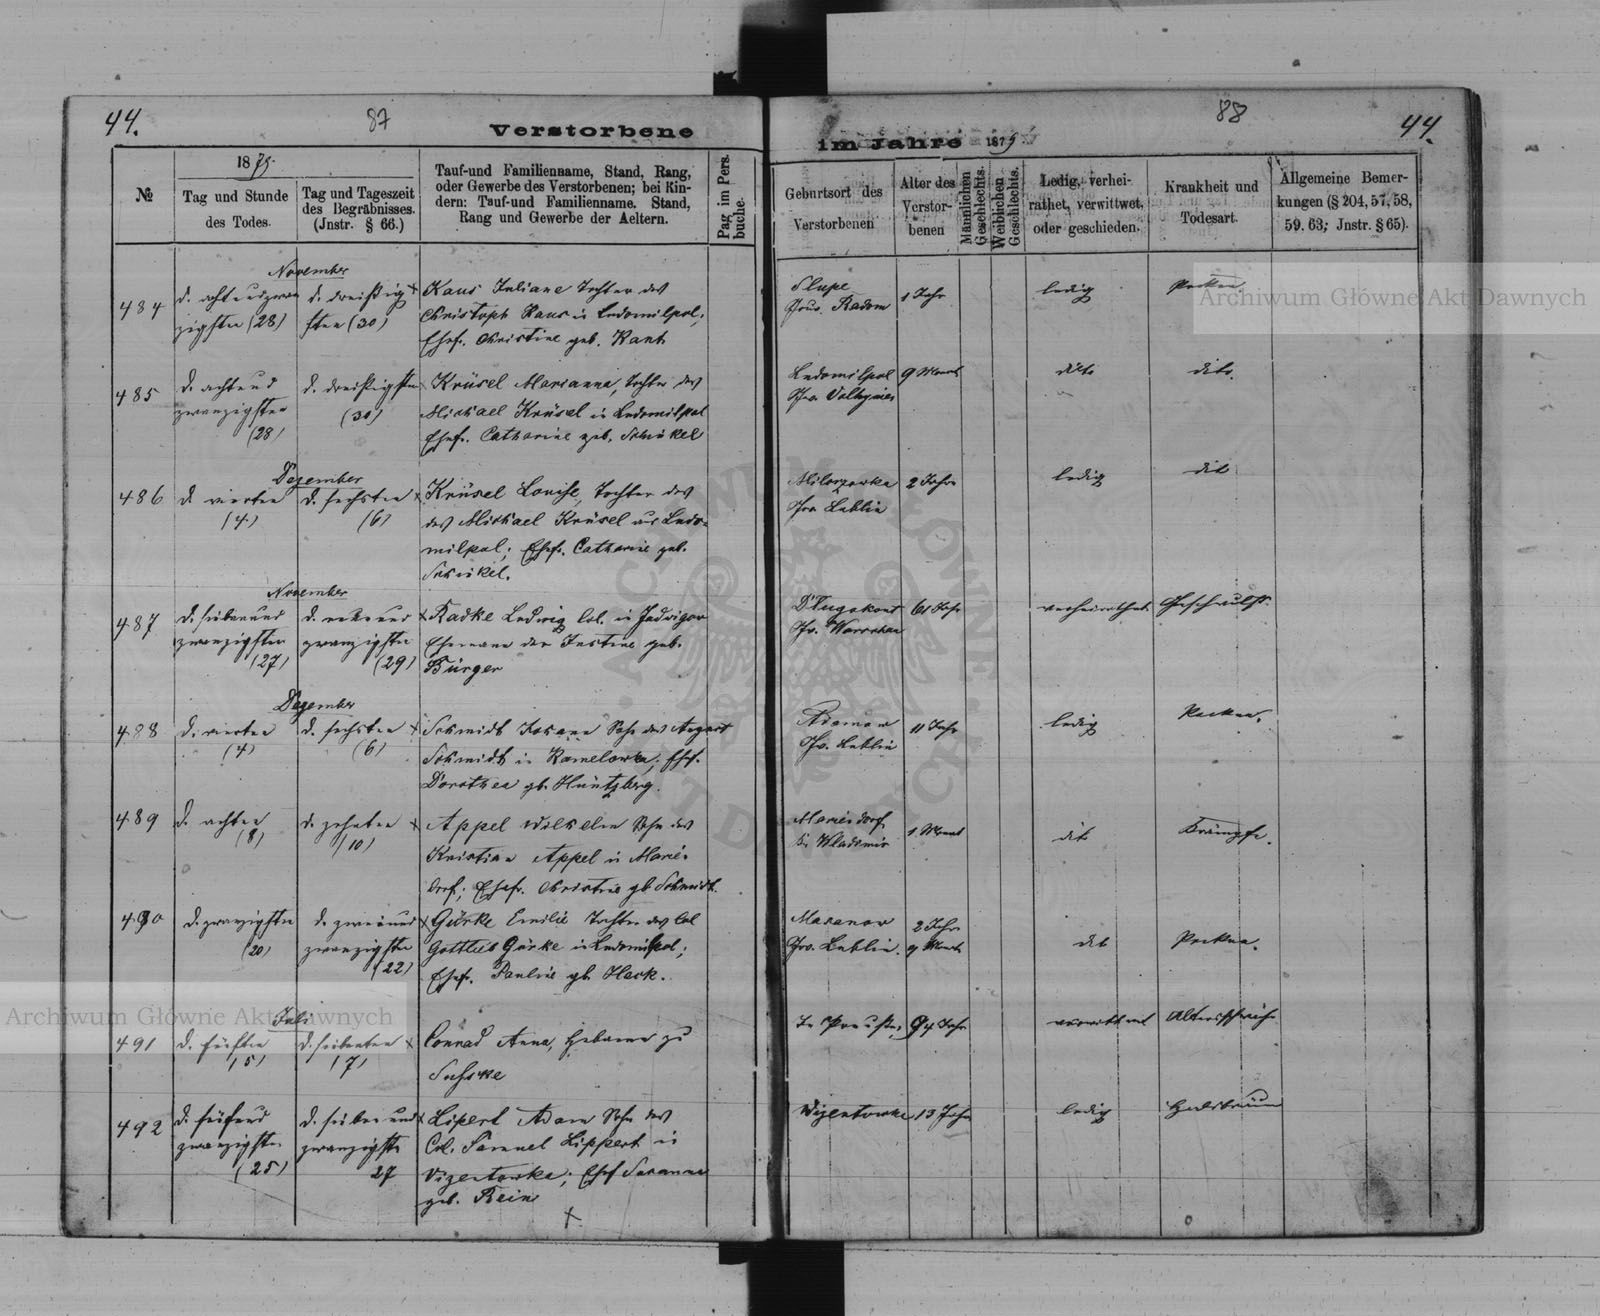 44.
87
Verstorbene
№
1875.
Tag und Stunde
des Todes.
Tag und Tageszeit
des Begräbnisses.
(Jnstr. § 66.)
Tauf-und Familienname, Stand, Rang,
oder Gewerbe des Verstorbenen; bei Kin-
dern: Tauf-und Familienname. Stand,
Rang und Gewerbe der Aeltern.
Pag im Pers.
buche.
88
44.
im Jahre 1875
Geburtsort des
Verstorbenen
Alter des
Verstor-
benen
Männlichen
Geschlechts.
Weiblichen
Geschlechts.
Ledig, verhei-
rathet, verwittwet,
oder geschieden.
Krankheit und
Todesart.
Allgemeine Bemer-
kungen (§ 204, 57, 58,
59. 63; Jnstr. § 65).
November
484
d. achtundzwan
zigsten (28)
d. dreißig
sten (30)
Kaus Juliane Tochter des
Christoph Kaus in Ludomilpol;
Ehefr. Christine geb. Kant
Slupe
Gouv. Radom
1 Jahr
ledig
Pocken
485
d. achtund
zwanzigsten
(28)
d. dreißigsten
(30)
Krüsel Marianna, Tochter des
Michael Krüsel in Ludomilpol
Ehefr. Catharine geb. Schinkel
Ludomilpol
Gouv. Volhynien
9 Monat
dito
dito.
Dezember
486
d. vierten
(4)
d. sechsten
(6)
Krüsel Louise, Tochter des
des Michael Krüsel aus Ludo-
milpol; Ehefr. Catharine geb.
Schinkel.
Gouv Lublin
2 Jahr
ledig
dito
November
487
d. siebenund
zwanzigsten
(27)
d. neunund
zwanzigsten
(29)
Radke Ludwig Col. in Jadwigow
Ehemann der Justine geb.
Bürger
Dlugokont
Gv. Warschau
61 Jahr
verheirathet
Geschwulst.
Dezember
488
d. vierten
(4)
d. sechsten
(6)
Schmidt Johann Sohn des August
Schmidt in Kamelowka; Ehef.
Dorothea gb. Hüntzberg.
Adamow
Gv. Lublin
11 Jahr
ledig
Pocken.
489
d. achten
(8)
d. zehnten
(10)
Appel Wilhelm Sohn des
Kristian Appel in Marien-
dorf; Ehefr. Christine gb Schmidt.
Mariendorf
bei Wladimir
1 Monat
dito
Krämpfe.
490
d. zwanzigsten
(20)
d. zweiund
zwanzigsten
(22)
Gürke Emilie Tochter des Col
Gottlieb Gürke in Ludomilpol;
Ehefr. Pauline gb. Heck.
Masanow
Gouv. Lublin.
2 Jahr
9 Monat
dito
Pocken.
Juli
491
d. fünften
(5)
d. siebenten
(7)
Conrad Anna, Hebamme zu
In Preußen
94 Jahr
verwittwet
Altersschwäche
492
d. fünfund
zwanzigsten
(25)
d. siebenund
zwanzigsten
27
Lipert Adam Sohn des
Col. Samuel Lippert in
Vizentowka; Ehef Susanna
geb. Rein
Wizentowka
13 Jahr
ledig
Halsbräune
Archiwum Główne Akt Dawnych
Archiwum Główne Akt Dawnych
ARCHIWUM GŁÓWNE AKT DAWNYCH